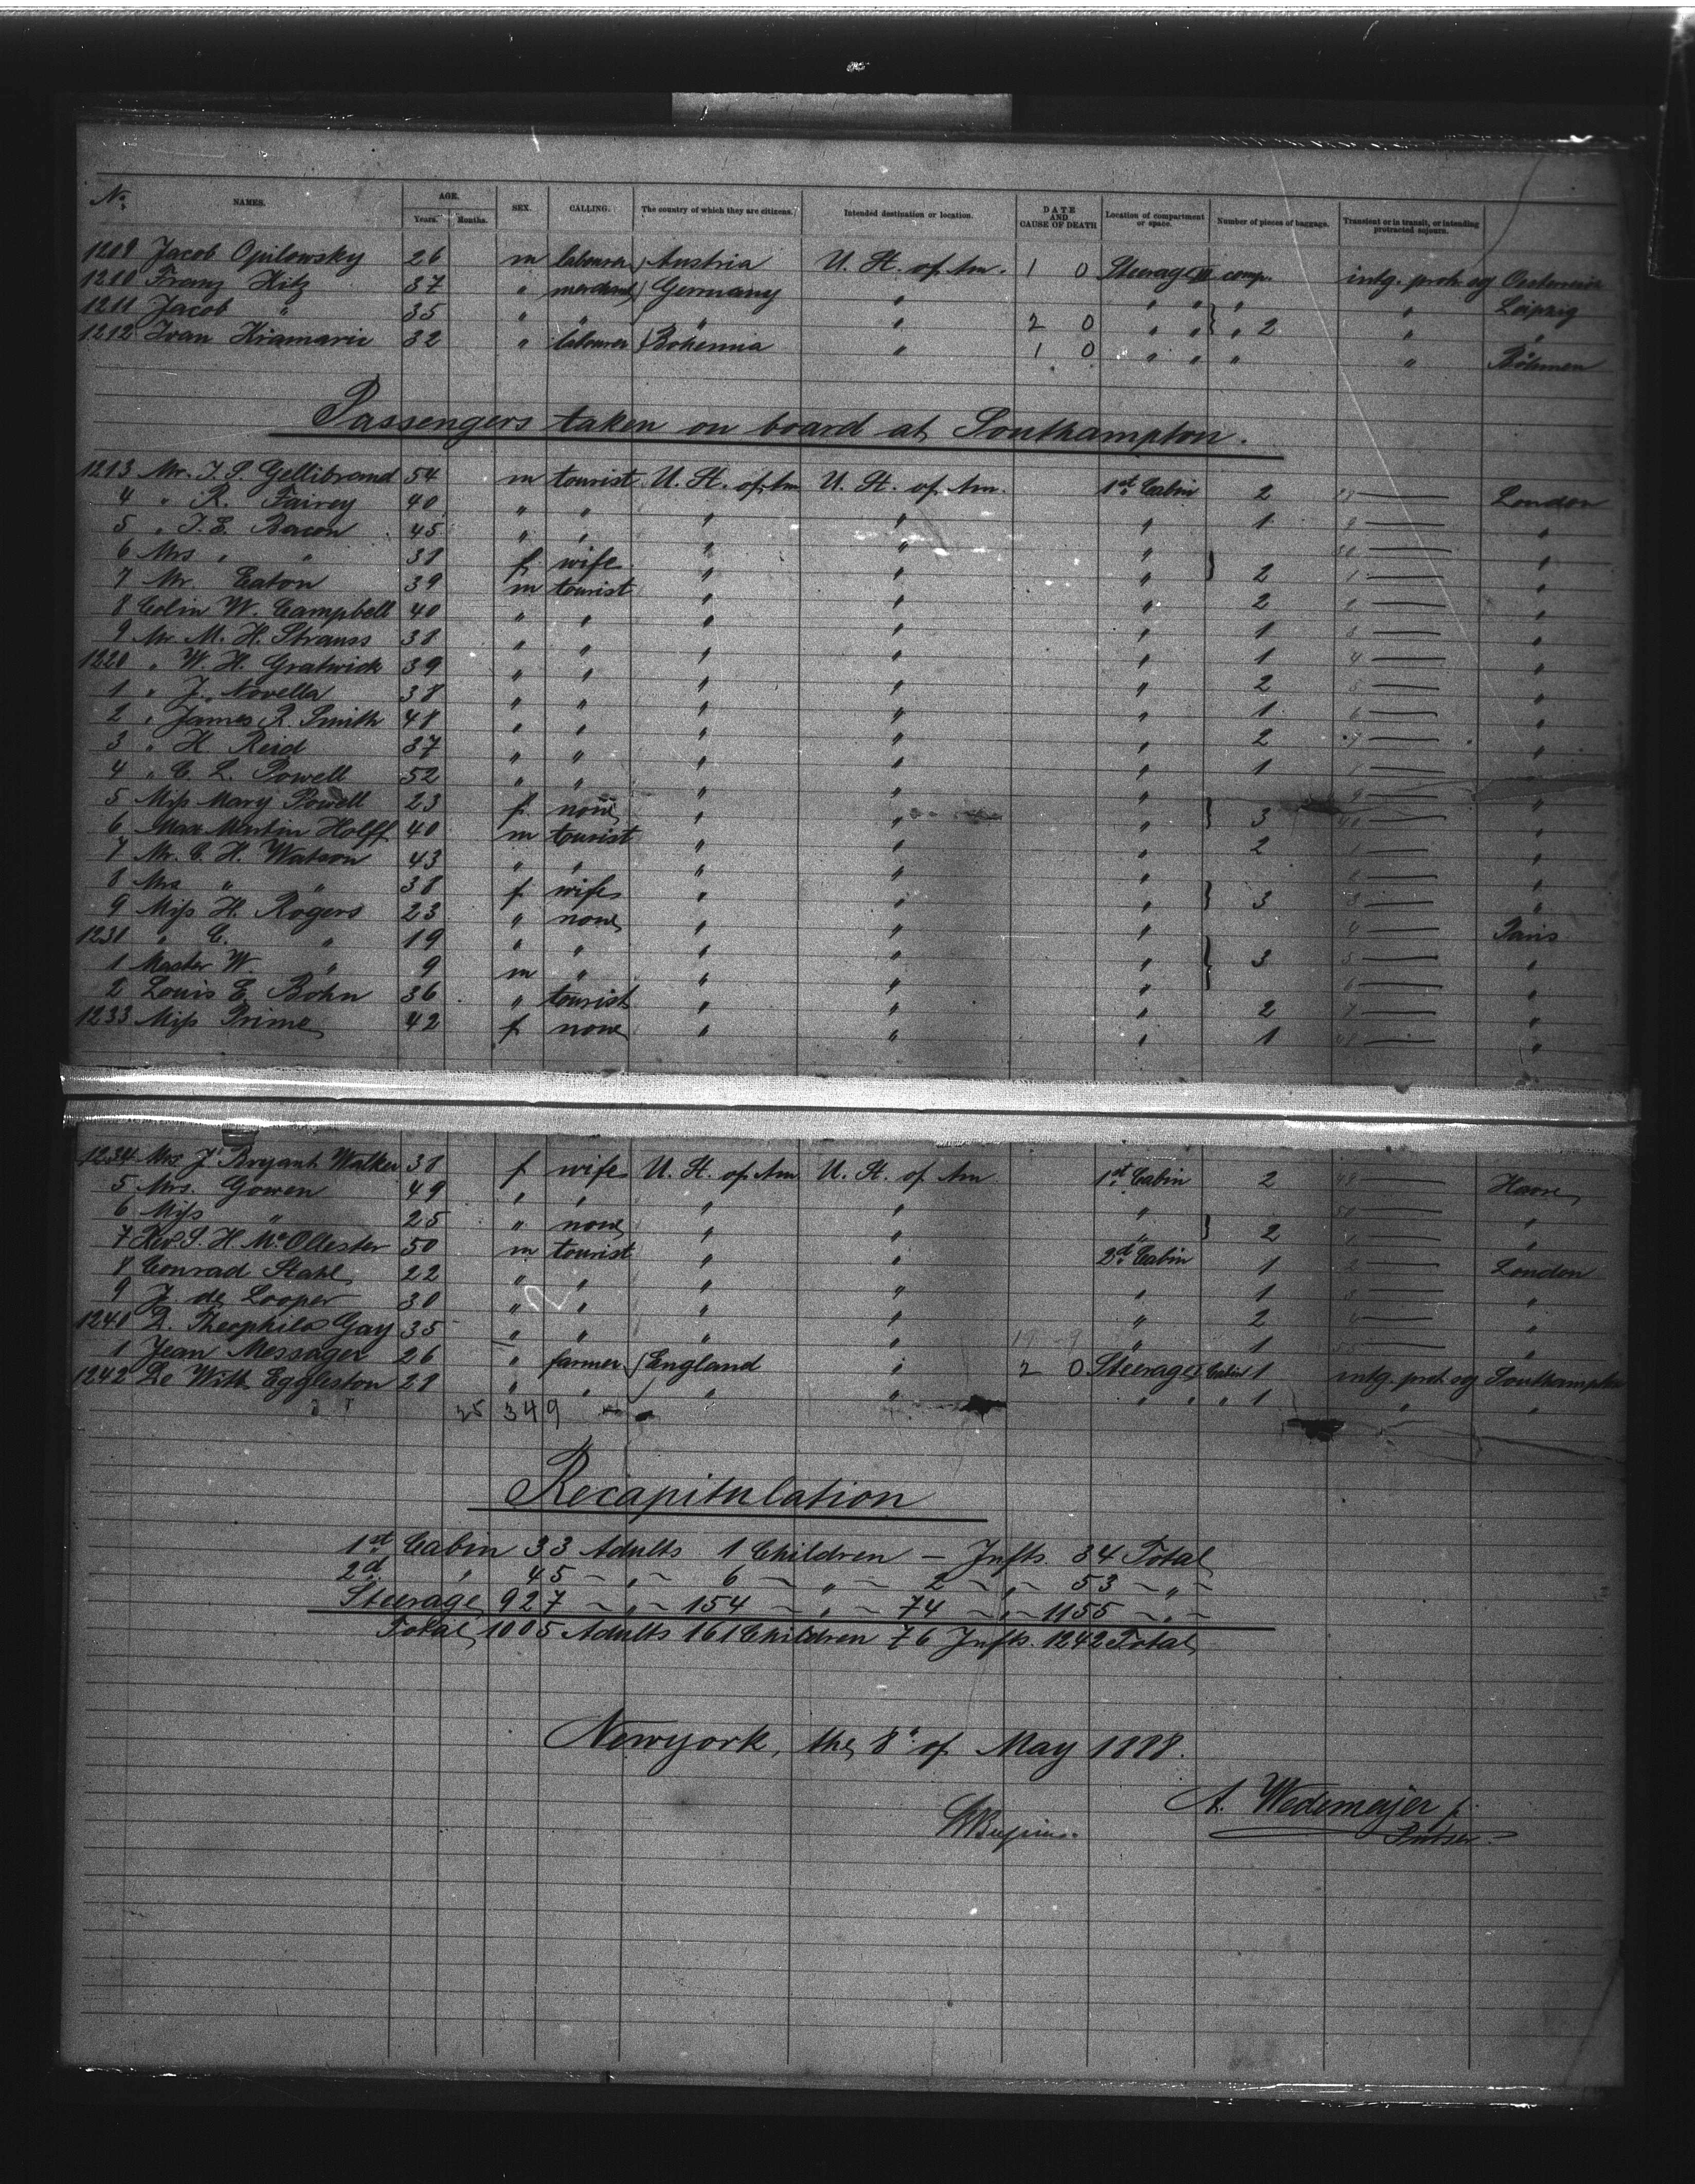 No. NAMES. AGE. Years. Months. SEX. CALLING. The country of which they are citizens. Intended destination or location. DATE AND CAUSE OF DEATH Location of compartment or space. Number of pieces of baggage. Transient or in transit, or intending protracted sojourn.
1209 Jacob Opilowsky 26 m labourer Austria U. St. of Am. 1 0 Steerage II comp. intg. protr. sg Oesterreich
1210 Franz Hitz 37 " merchant Germany " " " " " Leipzig
1211 Jacob " 35 " " " " 2 0 " " " 2 " "
1212 Ivan Kramaric 32 " labourer Bohemia " 1 0 " " " " Böhmen
Passengers taken on board at Southampton.
1213 Mr. T. S. Gellibrand 54 m tourist U. St. of Am U. St. of Am. 1st Cabin 2 London
4 " R. Fairey 40 " " " " " 1 "
5 " T. E. Bacon 45 " " " " " "
6 Mrs " " 38 f wife " " " 2 "
7 Mr. Eaton 39 m tourist " " " 2 "
8 Colin W. Campbell 40 " " " " " 1 "
9 Mr M. H. Strauss 38 " " " " " 1 "
1220 " W. H. Gratwick 39 " " " " " 2 "
1 " J. Novella 38 " " " " " 1 "
2 " James R. Smith 48 " " " " " 2 "
3 " H. Reid 37 " " " " " 1 "
4 " C. L. Powell 52 " " " " " "
5 Miss Mary Powell 23 f none " " " 3 "
6 Max Martin Holff 40 m tourist " " " 2 "
7 Mr. C. H. Watson 43 " " " " " "
8 Mrs " " 38 f wife " " " 3 "
9 Miss H. Rogers 23 " none " " " Paris
1231 " C. " 19 " " " " " 3 "
1 Master W. " 9 m " " " " "
2 Louis E. Bohn 36 " tourist " " " 2 "
1233 Miss Prime 42 f none " " " 1 "
1234 Mrs J. Bryant Walker 38 f wife U. St. of Am U. St. of Am 1st Cabin 2 Havre
5 Mrs. Gowen 49 " " " " " "
6 Miss " 25 " none " " " 2 "
7 Rev. S. H. McOllester 50 m tourist " " 2d Cabin 1 London
8 Conrad Stahl 22 " " " " " 1 "
9 J. de Looper 30 " " " " " 2 "
1240 D. Theophilos Gay 35 " " " " " 1 "
1 Jean Messager 26 " farmer England " 2 0 Steerage 1 intg. protr. sg Southampton
1242 De Witt Eggleston 28 " " " " " " " 1 " "
25 349
Recapitulation
1st Cabin 33 Adults 1 Children — Infts. 34 Total
2d " 45 " 6 " 2 " 53 "
Steerage 927 " 154 " 74 " 1155 "
Total 1005 Adults 161 Children 76 Infts. 1242 Total
Newyork, the 8. of May 1888.
A. Wedemeyer